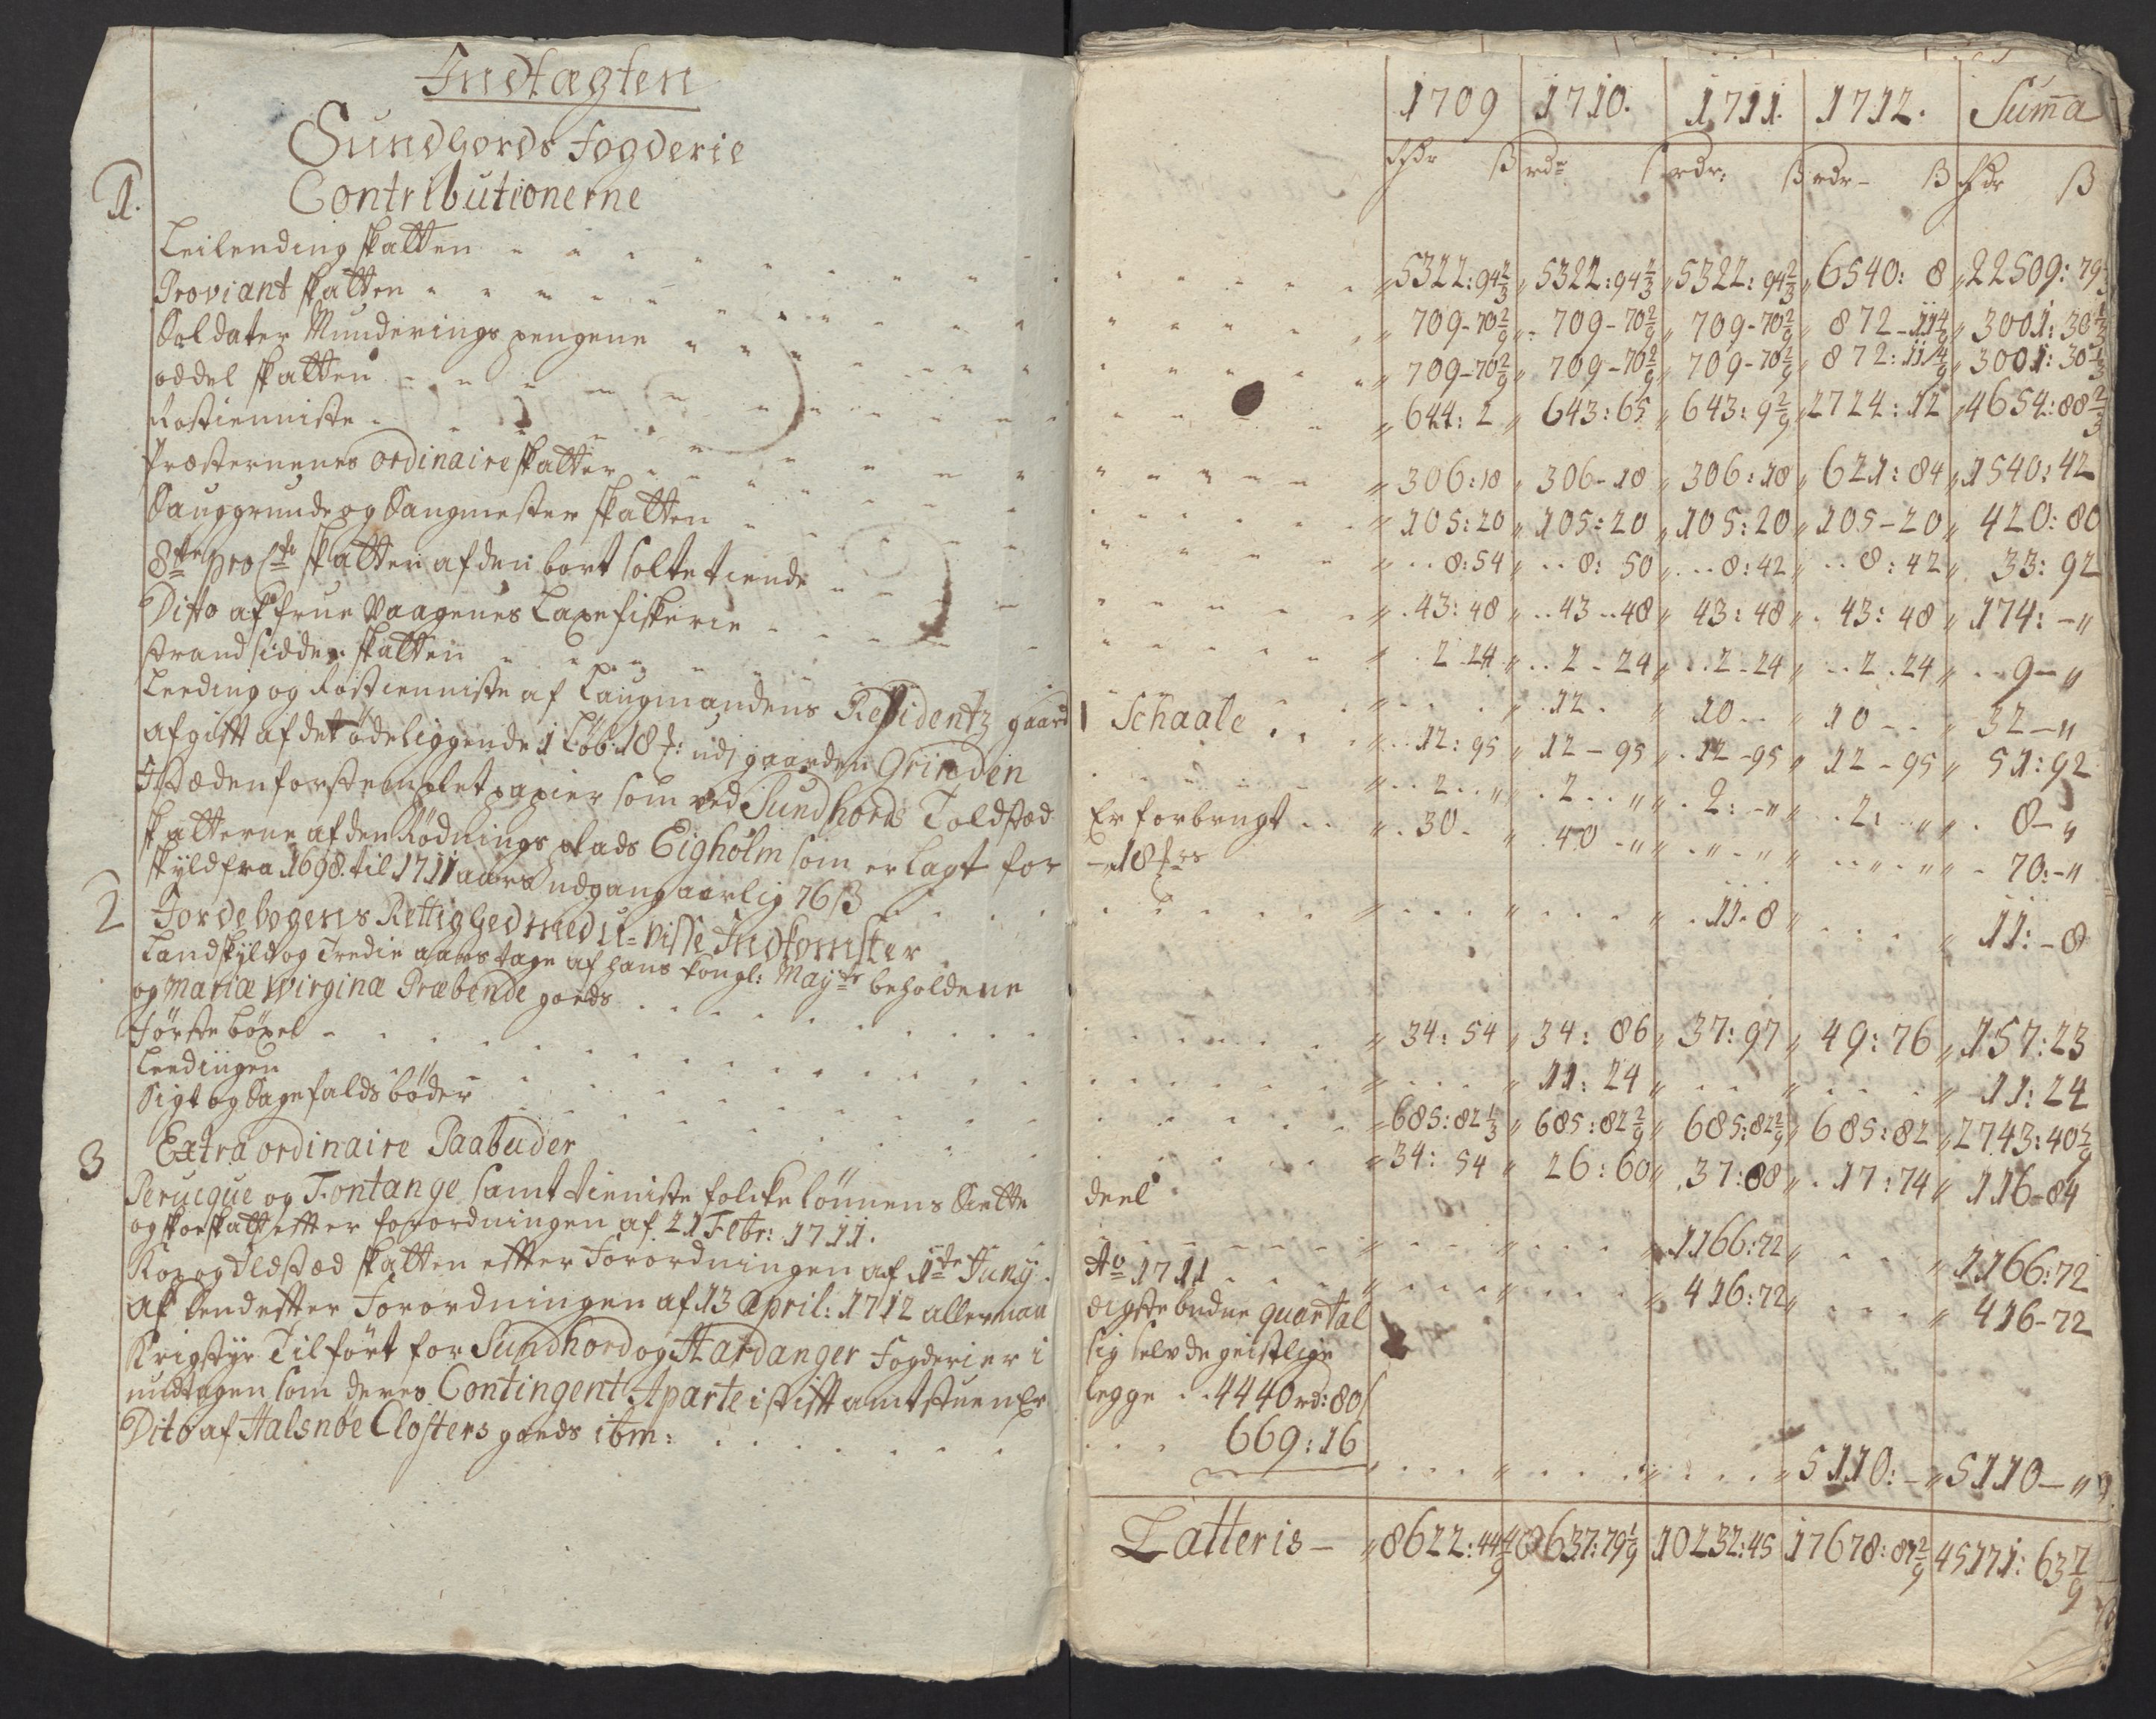 Indtægten
Sundhords Fogderie
1. Contributionerne
Leilending skatten
Proviant skatten
Soldater Munderings pengene
oddel skatten
Rostienniste
Præsternenes ordinaire skatter
Sauggrunde og Saugmester skatten
8de pro Cto skatten af den bort solte tiende
Ditto af frue Vaagenes Laxefiskerie
strand sidder skatten
Leeding og Rostienniste af Laugmandens Residentz gaard
afgift af det ødeliggende 1 Løb: 18 udj gaarden Grinden
Istæden for stemplet papier som ved Sundhords Toldsted
skatterne af den Rødnings plads Eigholm som er lagt for
skyld fra 1698. til 1711 aars udgang aarlig 76 ß
2 Jordebogens Rettighed med u-visse Indkomster
Landskyld og Tredie aars tage af hans kongl: Mayts beholdene
og Mariæ Virginæ Præbende goeds
Første bøxel
Leedingen
Sigt og Sagefalds bøder
3 Extra ordinaire Paabuder
Peruque og Fontange samt tieniste folcke lønnens Siette
og skoe skatt efter forordningen af 21 Febr: 1711.
Kop og Ildsted skatten efter Forordningen af 1te Junij
af bem efter Forordningen af 13 April: 1712 aller naa
Krigstyr Tilført for Sundhord og Hardanger Fogderier i
undtagen som deres Contingent Aparte i stift amtstuen Er
Dito af Halsnöe Closters goeds ibm:
1709 1710. 1711. 1712. Suma
rdr ß rdr ß rdr: ß rdr ß rdr ß
5322: 94 2/3 5322: 94 2/3 5322: 94 2/3 6540: 8 22509: 79
709-70 2/9 709-70 2/9 709-70 2/9 872-11 4/9 3001: 30 1/3
709-70 2/9 709-70 2/9 709-70 2/9 872: 11 4/9 3001: 30 1/3
644: 2 643: 65 643: 9 2/9 2724: 12 4654: 88 2/3
306: 18 306-18 306: 18 621: 84 1540: 42
105: 20 105: 20 105: 20 105-20 420: 80
8: 54 8: 50 8: 42 8: 42 33: 92
43: 48 43 48 43: 48 43: 48 174: -
2 24 2-24 2-24 2 24 9-
Schaale 12 10 10 32-
12: 95 12-95 12-95 12-95 51: 92
2 2 2: - 2: 8-
Er forbrugt 30 40 70: -
18
11-8 11: -8
34: 54 34: 86 37: 97 49: 76 157: 23
11: 24 11: 24
685: 82 1/3 685: 82 2/9 685: 82 2/9 685: 82 2743: 40
34: 54 26: 60 37: 88 17: 74 116-84
deel
1166: 72 1166: 72
Ao 1711 416: 72 416-72
digste budne quartal
sig selv de geistlige
legge 4440 rd: 80
669: 16 5110: - 5110-
Latteris 8622: 44 4/9 637: 79 1/9 10232: 45 17678: 87 2/9 45171: 63 7/9